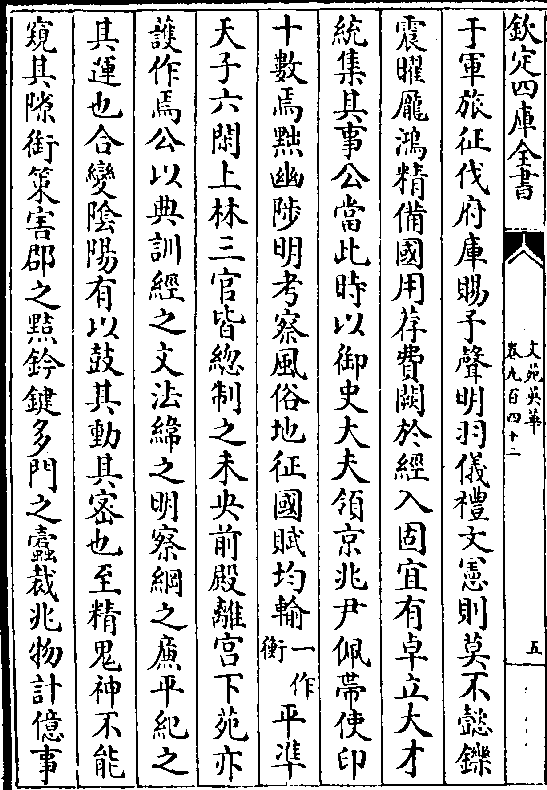 欽定四庫全書
文苑英華
卷九百四十二
五
于軍旅征伐府庫賜予聲明羽儀禮文憲則莫不懿鑠
震曜厖鴻精備國用荐費闕於經入固宜有卓立大才
統集其事公當此時以御史大夫領京兆尹佩帶使印
十數焉黜幽陟明考察風俗地征國賦均輸一作衡平準
天子六閑上林三官皆總制之未央前殿離宮下苑亦
護作焉公以典訓經之文法緯之明察綱之廉平紀之
其運也合變陰陽有以鼓其動其密也至精鬼神不能
窺其隙銜策害郡之黠鈐鍵多門之蠹裁兆物計億事